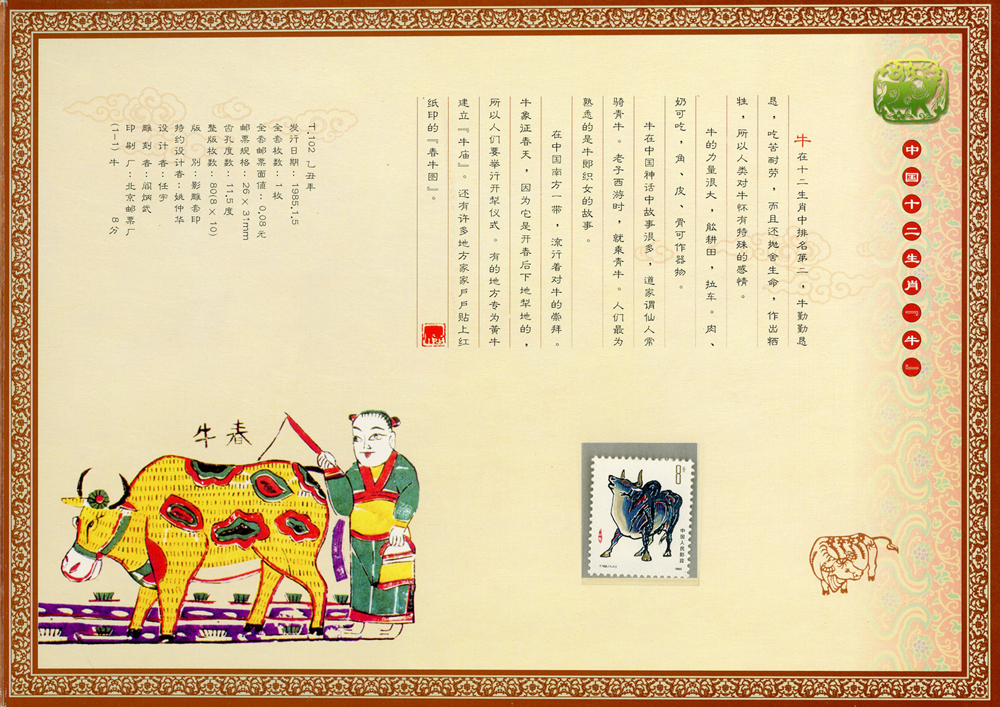 中国十二生肖『牛』
牛在十二生肖中排名第二，牛勤勤恳
恳，吃苦耐劳，而且还抛舍生命，作出牺
牲，所以人类对牛怀有特殊的感情。
牛的力量很大，能耕田，拉车。肉、
奶可吃，角、皮、骨可作器物。
牛在中国神话中故事很多，道家谓仙人常
骑青牛。老子西游时，就乘青牛。人们最为
熟悉的是牛郎织女的故事。
在中国南方一带，流行着对牛的崇拜。
牛象证春天，因为它是开春后下地犁地的，
所以人们要举行开犁仪式。有的地方专为黄牛
建立『牛庙』。还有许多地方家家户户贴上红
纸印的『春牛图』。
T.102 乙丑年
发行日期：1985.1.5
全套枚数：1枚
全套邮票面值：0.08元
邮票规格：26×31mm
齿孔度数：11.5度
整版枚数：80(8×10)
版 别：影雕套印
设计者：任宇
特约设计者：姚仲华
雕刻者：阎炳武
印刷厂：北京邮票厂
(1-1) 牛 8分
春牛
8分
中国人民邮政
1985